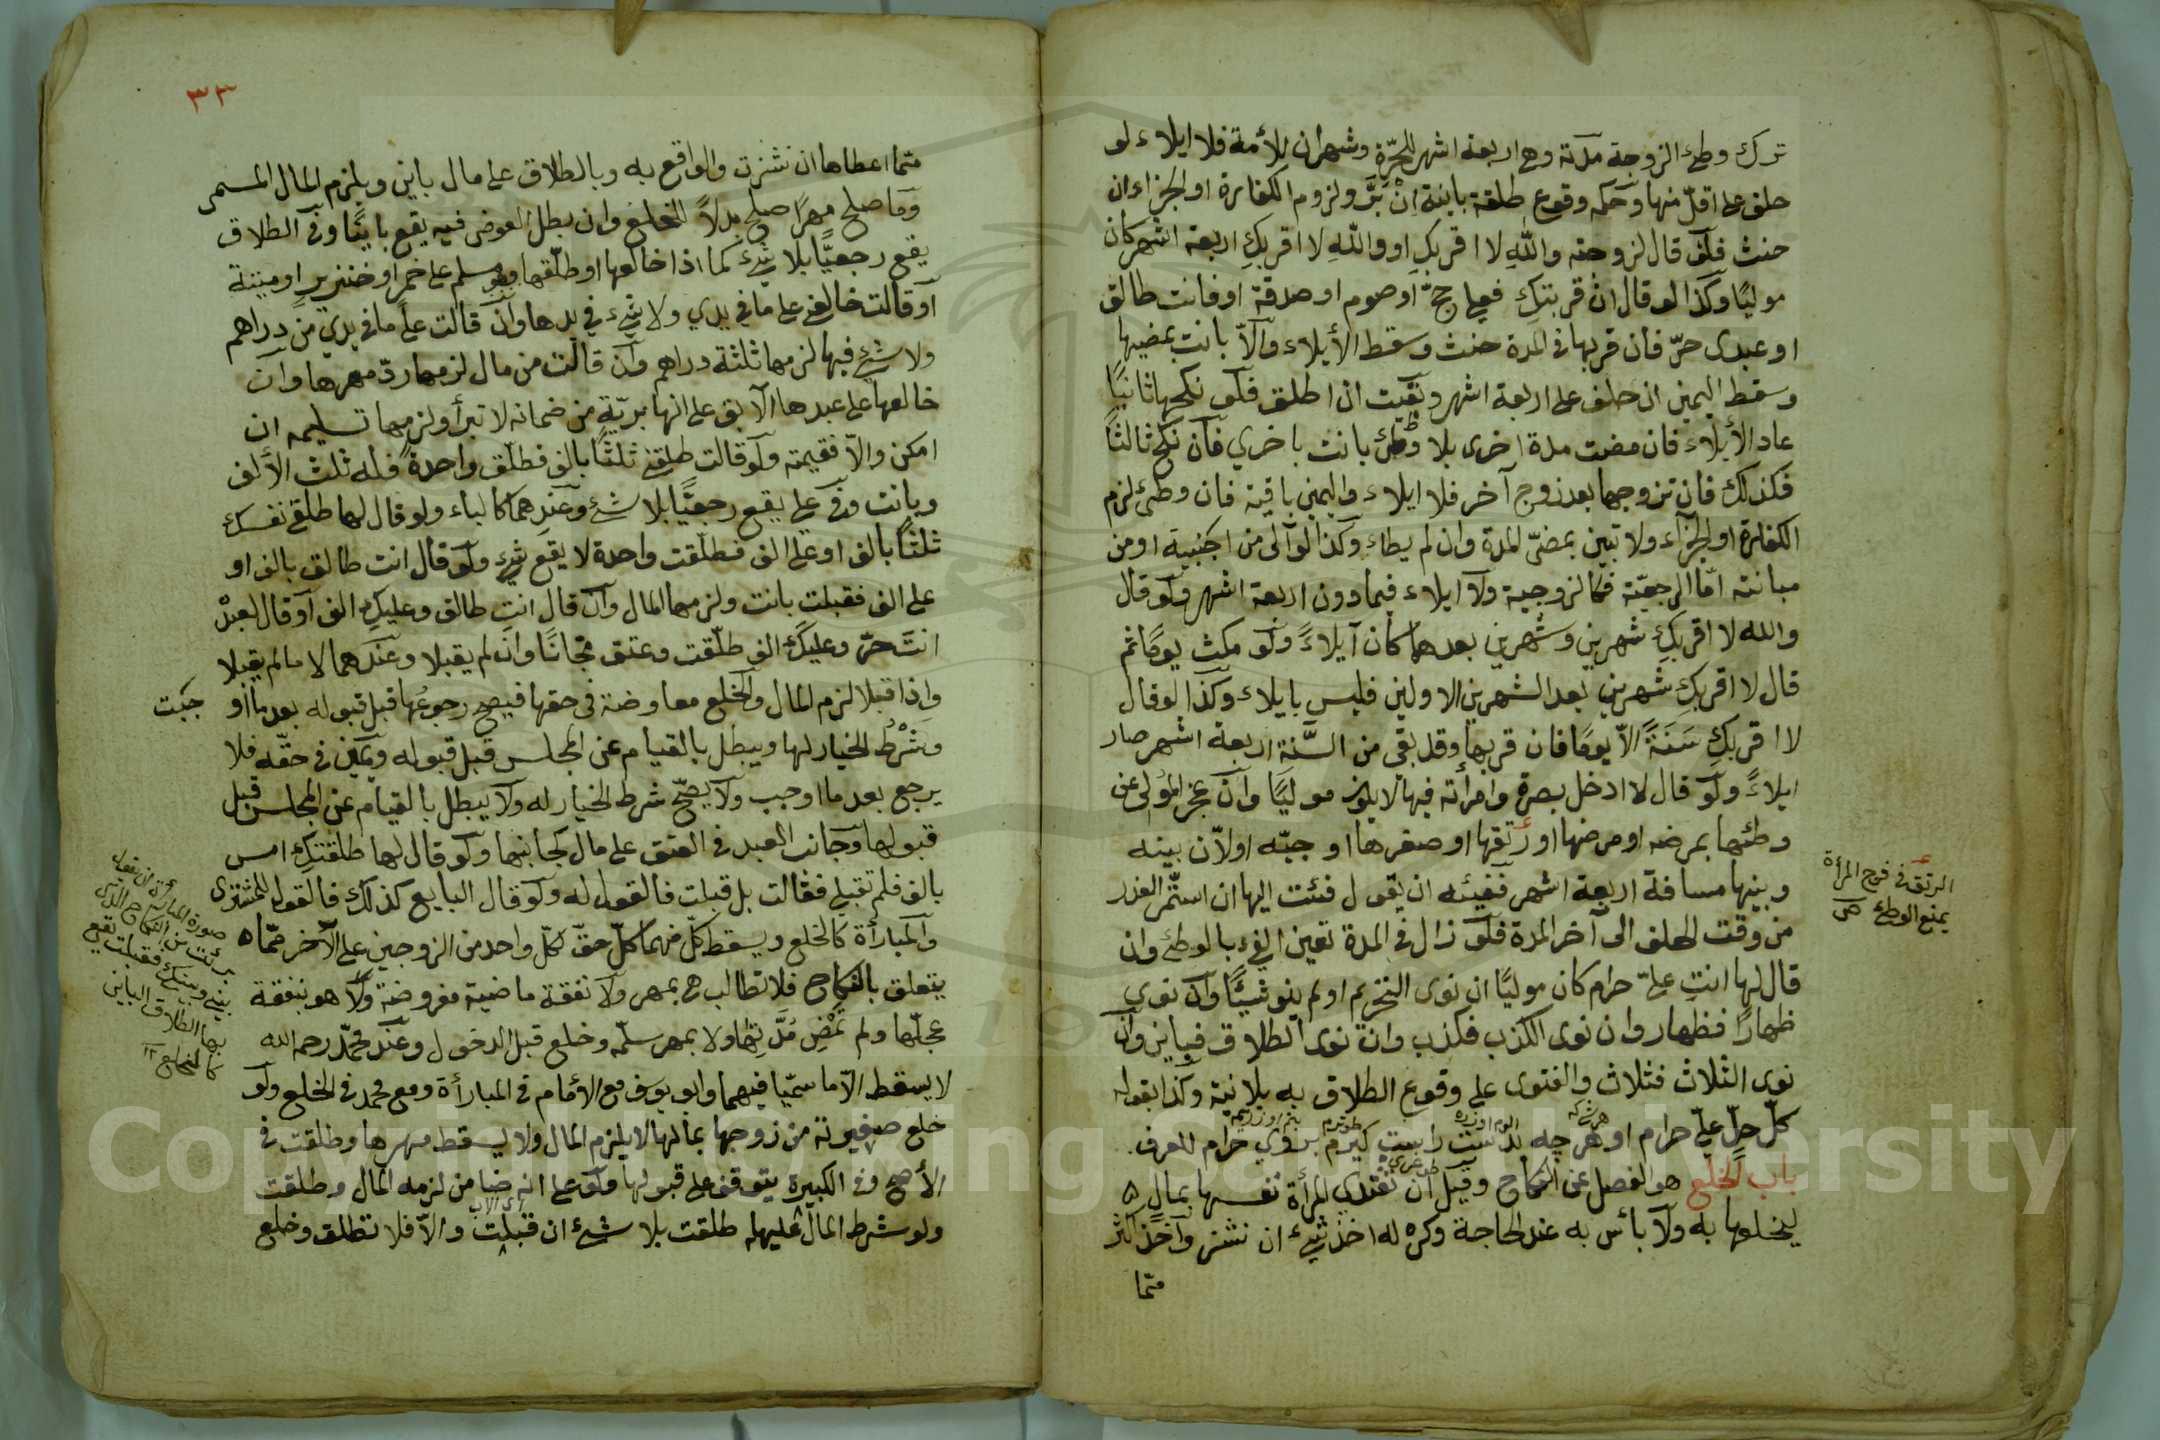 ترك وطئ الزوجة مدته وهي اربعة اشهر للحرّة وشهران للأمة فلا ايلاء لو
حلف على اقلّ منها وحكمه وقوع طلقة باينة اِنْ بَرَّ ولزوم الكفارة او الجزاء ان
حنث فلو قال لزوجته واللّهِ لا اقربكِ او واللّهِ لا اقربكِ اربعة اشهر كان
موليًا وكذا لو قال ان قربتكِ فعلي حجّ او صوم او صدقة او فانت طالق
او عبدى حرّ فان قربها في المدة حنث وسقط الأيلاء والّا بانت بمضيها
وسقط اليمين ان حلف على اربعة اشهر وبقيت ان اطلق فلو نكحها ثانيًا
عاد الأيلاء فان مضت مدة اخرى بلا وطئ بانت باخري فان نكح ثالثًا
فكذلك فان تزوجها بعد زوج آخر فلا ايلاء واليمين باقية فان وطئ لزم
الكفارة او الجزاء ولا تبين بمضىّ المدة وان لم يطاء وكذا لو آلى من اجنبية او من
مبانته امّا الرجعيّة فكالزوجية ولا ايلاء فيما دون اربعة اشهر ولو قال
والله لا اقربكِ شهرين وشهرين بعدهما كان ايلاءً ولو مكث يومًا ثم
قال لا اقربكِ شهرين بعد الشهرين الاولين فليس بايلاء وكذا لو قال
لا اقربكِ سَنَةً الاّ يومًا فان قربها وقد بقي من السَّنة اربعة اشهر صار
ايلاءً ولو قال لا ادخل بصرة وامرأته فيها لا يكون موليًا وان عجز المُولى عن
وطئها بمرضه او مرضها او رتقها او صغرها او جبّه او لاّن بينه
وبينها مسافة اربعة اشهر ففيئه ان يقول فئت اليها ان استمّر العذر
من وقت الحلف الى آخر المدة فلو زال في المدة تعين الفئ بالوطئ وان
قال لها انتِ علىّ حرام كان موليًا ان نوى التحريم او لم ينو شيئًا وان نوى
ظهارًا فظهار وان نوى الكذب فكذب وان نوى الطلاق فباين وان
نوى الثلاث فثلاث والفتوى على وقوع الطلاق به بلا نية وكذا بقوله
كلّ حلّ عليّ حرام او هر چه بدست راست كيرم بروي حرام للعرف
باب الخلع هو الفصل عن النكاح وقيل ان تفتدي المرأة نفسها بمال
ليخلعها به ولا بأس به عند الحاجة وكره له اخذ شئ ان نشز واخذ اكثر
ممّا
الرتق في فرج المرأة
يمنع الوطئ
٣٣
ممّا اعطاها ان نشزت والواقع به وبالطلاق على مال باين ويلزم المال المسمى
وما صلح مهرًا صلح بدلاً للخلع وان بطل العوض فيه يقع باينًا وفي الطلاق
يقع رجعيًّا بلا شئ كما اذا خالعها او طلّقها وهو مسلم على خمر او خنزير او ميتة
او قالت خالعني على ما في يدي ولا شئ في يدها وان قالت على ما في يدي من دراهم
ولا شئ فيها لزمها ثلثة دراهم وان قالت من مال لزمها ردّ مهرها وان
خالعها على عبدها الآبق على انها بريّة من ضمانه لا تبرأ ولزمها تسليمه ان
امكن والاّ فقيمته ولو قالت طلقني ثلثًا بالف فطلّق واحدةً فله ثلث الألف
وبانت وفي علي يقع رجعيًّا بلا شئ وعندهما كالباء ولو قال لها طلقي نفسك
ثلثًا بالف او على الف فطلّقت واحدة لا يقع شئ ولو قال انت طالق بالف او
على الف فقبلت بانت ولزمها المال وان قال انتِ طالق وعليكِ الف او قال لعبدْ
انتَ حرّ وعليكَ الف طلّقت وعتق مجّانًا وان لم يقبلا وعندهما لا ما لم يقبلا
واذا قبلا لزم المال والخلع معاوضة في حقها فيصح رجوعُها قبل قبوله بعد ما او
جبت
وشَرْطُ الخيار لها ويبطل بالقيام عن المجلس قبل قبوله ويمين في حقّه فلا
يرجع بعد ما اوجب ولا يصحّ شرط الخيار له ولا يبطل بالقيام عن المجلس قبل
قبولها وجانب العبد في العتق على مال كجانبها ولو قال لها طلقتكِ امس
بالف فلم تقبلي فقالت بل قبلت فالقول له ولو قال البايع كذلك فالقول للمشترى
والمبارأة كالخلع ويسقط كلّ منهما كلّ حقّ لكلّ واحد من الزوجين على الآخر ممّا
يتعلق بالنكاح فلا تطالب هي بمهر ولا نفقة ماضية مفروضة ولا هو بنفقة
عجلّها ولم تمْضِ مُدَّتُها ولا بمهر سلّمه وخلع قبل الدخول وعند محمّد رحمه الله
لا يسقط الاّ ما سمّيا فيهما وابو يوسف مع الأمام في المبارأة ومع محمد في الخلع ولو
خلع صغيرته من زوجها بمالها لا يلزم المال ولا يسقط مهرها وطلقت في
الأصح وفي الكبيرة يتوقف على قبولها ولو على انه ضامن لزمه المال وطلقت
اى الاب
ولو شرط المال عليها طلقت بلا شئ ان قبلت والاّ فلا تطلق وخلع
صورة المبارأة ان يقول
برئت من النكاح الذي
بيني وبينك فقبلت يقع
بها الطلاق الباين
كالخلع
Copyright © King Saud University